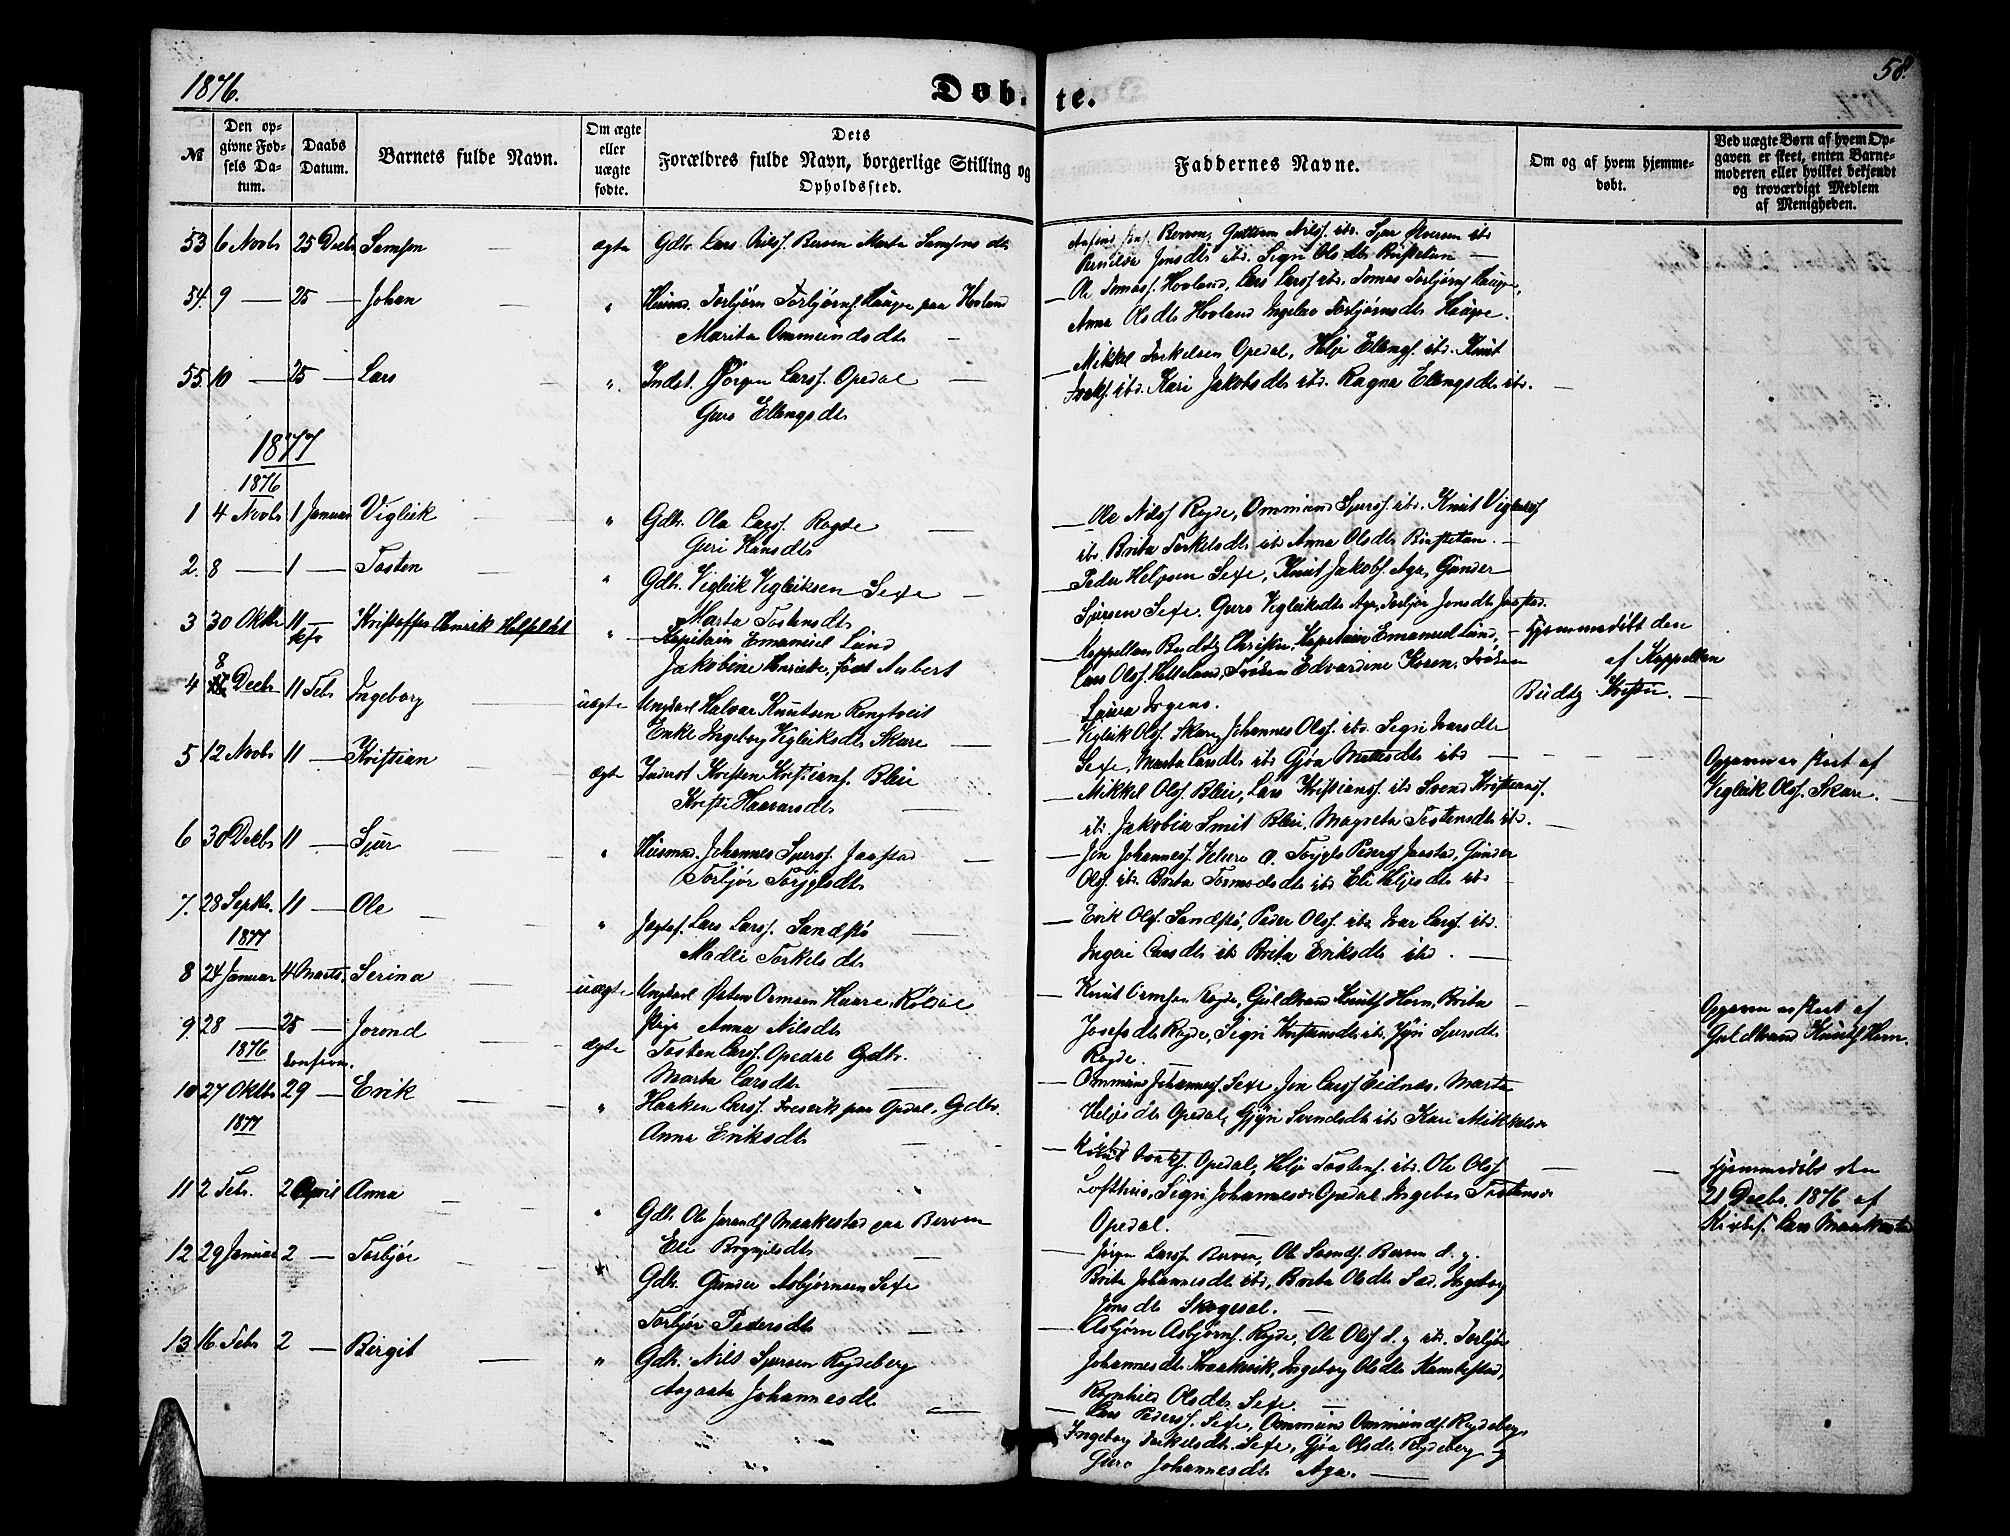 1876.
Døb-
te.
58.
№
Den op-
givne Fød-
sels Da-
tum.
Daabs
Datum.
Barnets fulde Navn.
Om ægte
eller
uægte
fødte.
Dets
Forældres fulde Navn, borgerlige Stilling og
Opholdssted.
Faddernes Navne.
Om og af hvem hjemme-
døbt.
Ved uægte Børn af hvem Op-
gaven er skeet, enten Barne-
moderen eller hvilket bekjendt
og troværdigt Medlem
af Menigheden.
53 6 Novbr 25 Decbr Samson — ægte Gdbr. Lars Nilss. Berven Marta Samsons dtr
Berven, Guttorm Nilss. ibd. Sjur ibd
Pernille Jonsdtr ibd. Sigri Olsdtr —
54. 9 — 25 — Johan " Husmd. Torbjørn Torbjørns. Hauge paa Hovland
Marita Ommundsdtr —
— Ole Tomass. Hovland, Lars Larss ibd. Tomas Torbjørns Hauge,
Anna Olsdtr Hovland Ingeleiv Torbjørnsdtr Hauge.
55. 10 — 25 — Lars — " Indst. Jørgen Larss. Opedal —
Guro Ellingsdtr
— Mikkel Torkelsen Opedal, Helje Ellings. ibd. Knut
ibd. Kari Jakobsdtr ibd. Ragna Ellingsdtr ibd. —
1877
1876
1 4 Novbr 1 Januar Vigleik — " Gdbr. Ola Larss. Rogde —
Guri Hansdtr
— Ole Nilss Rogde, Ommund Sjurss. ibd. Knut Vigleikss
ibd. Brita Torkelsdtr ibd Anna Olsdtr —
2. 8 — 1 — Tosten — " Gdbr. Vigleik Vigleiksen Sexe —
Marta Tostensdtr
— Peder Heljesen Sexe, Knut Jakobs. Aga, Gunder
Sjursen Sexe. Guro Vigleiksdtr Aga, Torbjør Jonsdtr Jaastad.
3 30 Oktbr 11 — Kristoffer Henrik " Kapitain Emanuel Lund
Jakobine Henriette, født Aubert
— Kappellan Budtz Christie, Kapitain Emanuel Lund,
Lars Olss. Helleland, Frøken Edvardine Koren, Frøken
— Hjemmedøbt den
af Kappellan
Budtz Kristie. —
4 8 Decbr 11 Febr Ingeborg — uægte Ungkarl Halvar Knutsen Rengtveit
Enke Ingeborg Vigleiksdtr Skare —
— Vigleik Olss. Skare, Johannes Olss. ibd. Sigri Ivarsdtr
Sexe, Marta Larsdtr ibd Gjøa ibd — — —
Opgaven er skeet af
Vigleik Olss. Skare. —
5 12 Novbr 11 — Kristian — ægte Inderst Kristen Kristians. Bleie
Kristi Haavarsdtr —
— Mikkel Olss. Bleie, Lars Kristianss. ibd Svend Kristianss.
ibd. Jakobia Smit Bleie, Magreta Tostensdtr ibd. —
6 30 Decbr 11 — Sjur — " Husmd. Johannes Sjurss. Jaastad —
Torbjør Torgjelsdtr
— Jon Johanness. Velure Torgjels Peders Jaastad, Gunder
Olss. ibd. Brita Tormodsdtr ibd Eli Heljesdtr ibd —
7. 28 Septbr. 11 — Ole — " Lars Larss. Sandstø —
Madli Torkelsdtr
— Erik Olss. Sandstø, Peder Olss. ibd Ivar Larss. ibd.
Ingeri Larsdtr ibd Brita Eriksdtr ibd. —
1877
8 24 Januar 4 Marts. Serina — uægte Ungkarl Østen Ormsen Haare, Røldal
Pige Anna Nilsdtr
— Knut Ormsen Rogde, Guldbrand Knuts Horn, Brita
Josefsdtr Rogde, Sigri Kristensdtr ibd, Gjøri Sjursdtr
Rogde. —
Opgaven er skeet af
Guldbrand Knuts Horn.
9. 28 — 25 — Jorend — ægte Tosten Larss. Opedal Gdbr.
Marta Larsdtr —
— Ommund Johanness. Sexe. Jon Larss Eidnes, Marta
Heljesdtr Opedal, Gjøri Svendsdtr ibd Kari Mikkelsdr
ibd
1876
10 27 Oktbr 29 — Erik — " Haaken Larss. Frederik paa Opedal. Gdbr.
Anna Eriksdtr —
— Knut Opedal, Helje Tostens. ibd. Ole Olss
Lofthus, Sigri Johannesdr Opedal Ingebor Tostensdr
Opedal. —
— Hjemmedøbt den
21 Decbr. 1876 af
Kirkes. Lars Maakestad
1877
11 2 Febr. 2 April Anna — " Gdbr. Ole Jorands Maakestad paa Berven
Eli —
— Jørgen Larss. Berven, Ole Berven d. y.
Brita Johannesdtr ibd, Brita Olsdtr Sæd, Ingeborg
Jonsdtr Skogesal. —
12 29 Januar 2 — Torbjør — Gdbr. Gunder Asbjørnsen Sexe
Torbjør Pedersdtr —
— Asbjørn Asbjørns. Rogde, Ole Olss d. y ibd. Torbjør
Johannesdtr Kraakevik, Ingeborg Olsdtr
Ragnhild Olsdtr Sexe. —
13 16 Febr 2 — Birgit — " Gdbr. Nils Sjursen Rogdeberg
Aagaata Johannesdtr —
— Lars Pederss. Sexe, Ommund Ommunds. Rogdeberg,
Ingeborg Torkelsdtr Sexe, Gjøa Olsdtr Rogdeberg og
Guro Johannesdtr Aga. —